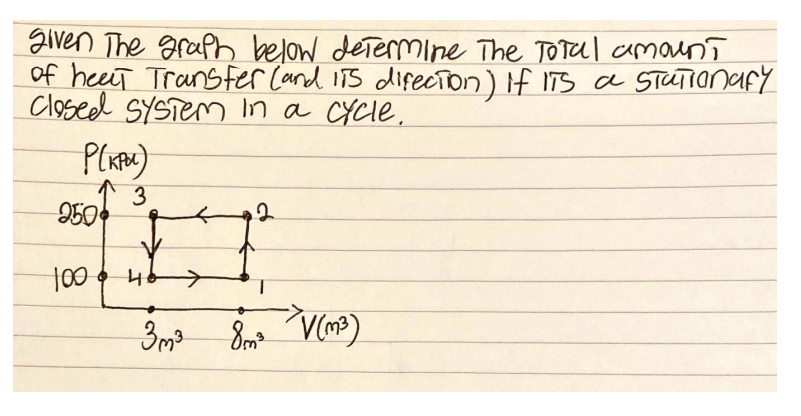 given The graph below determine The Total amount
of heat Transfer (and its direction) If its a stationary
closed system In a cycle.
P(KPa)
3
250
2
100
4
1
3m³ 8m³ V(m³)